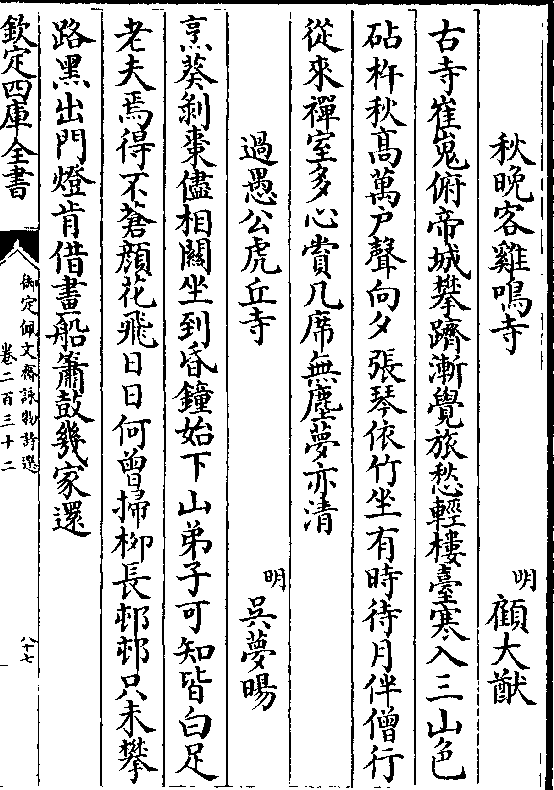 秋晚客雞鳴寺　明　顧大猷
古寺崔嵬俯帝城攀躋漸覺旅愁輕樓臺寒入三山色
砧杵秋高萬户聲向夕張琴依竹坐有時待月伴僧行
從來禪室多心賞几席無塵夢亦清
過愚公虎丘寺　明　吳夢暘
烹葵剥棗儘相關坐到昏鐘始下山弟子可知皆白足
老夫焉得不蒼顔花飛日日何曾掃栁長邨邨只未攀
路黑出門燈肯借畫船簫鼓幾家還
欽定四庫全書
御定佩文齋詠物詩選
卷二百三十二
八十七